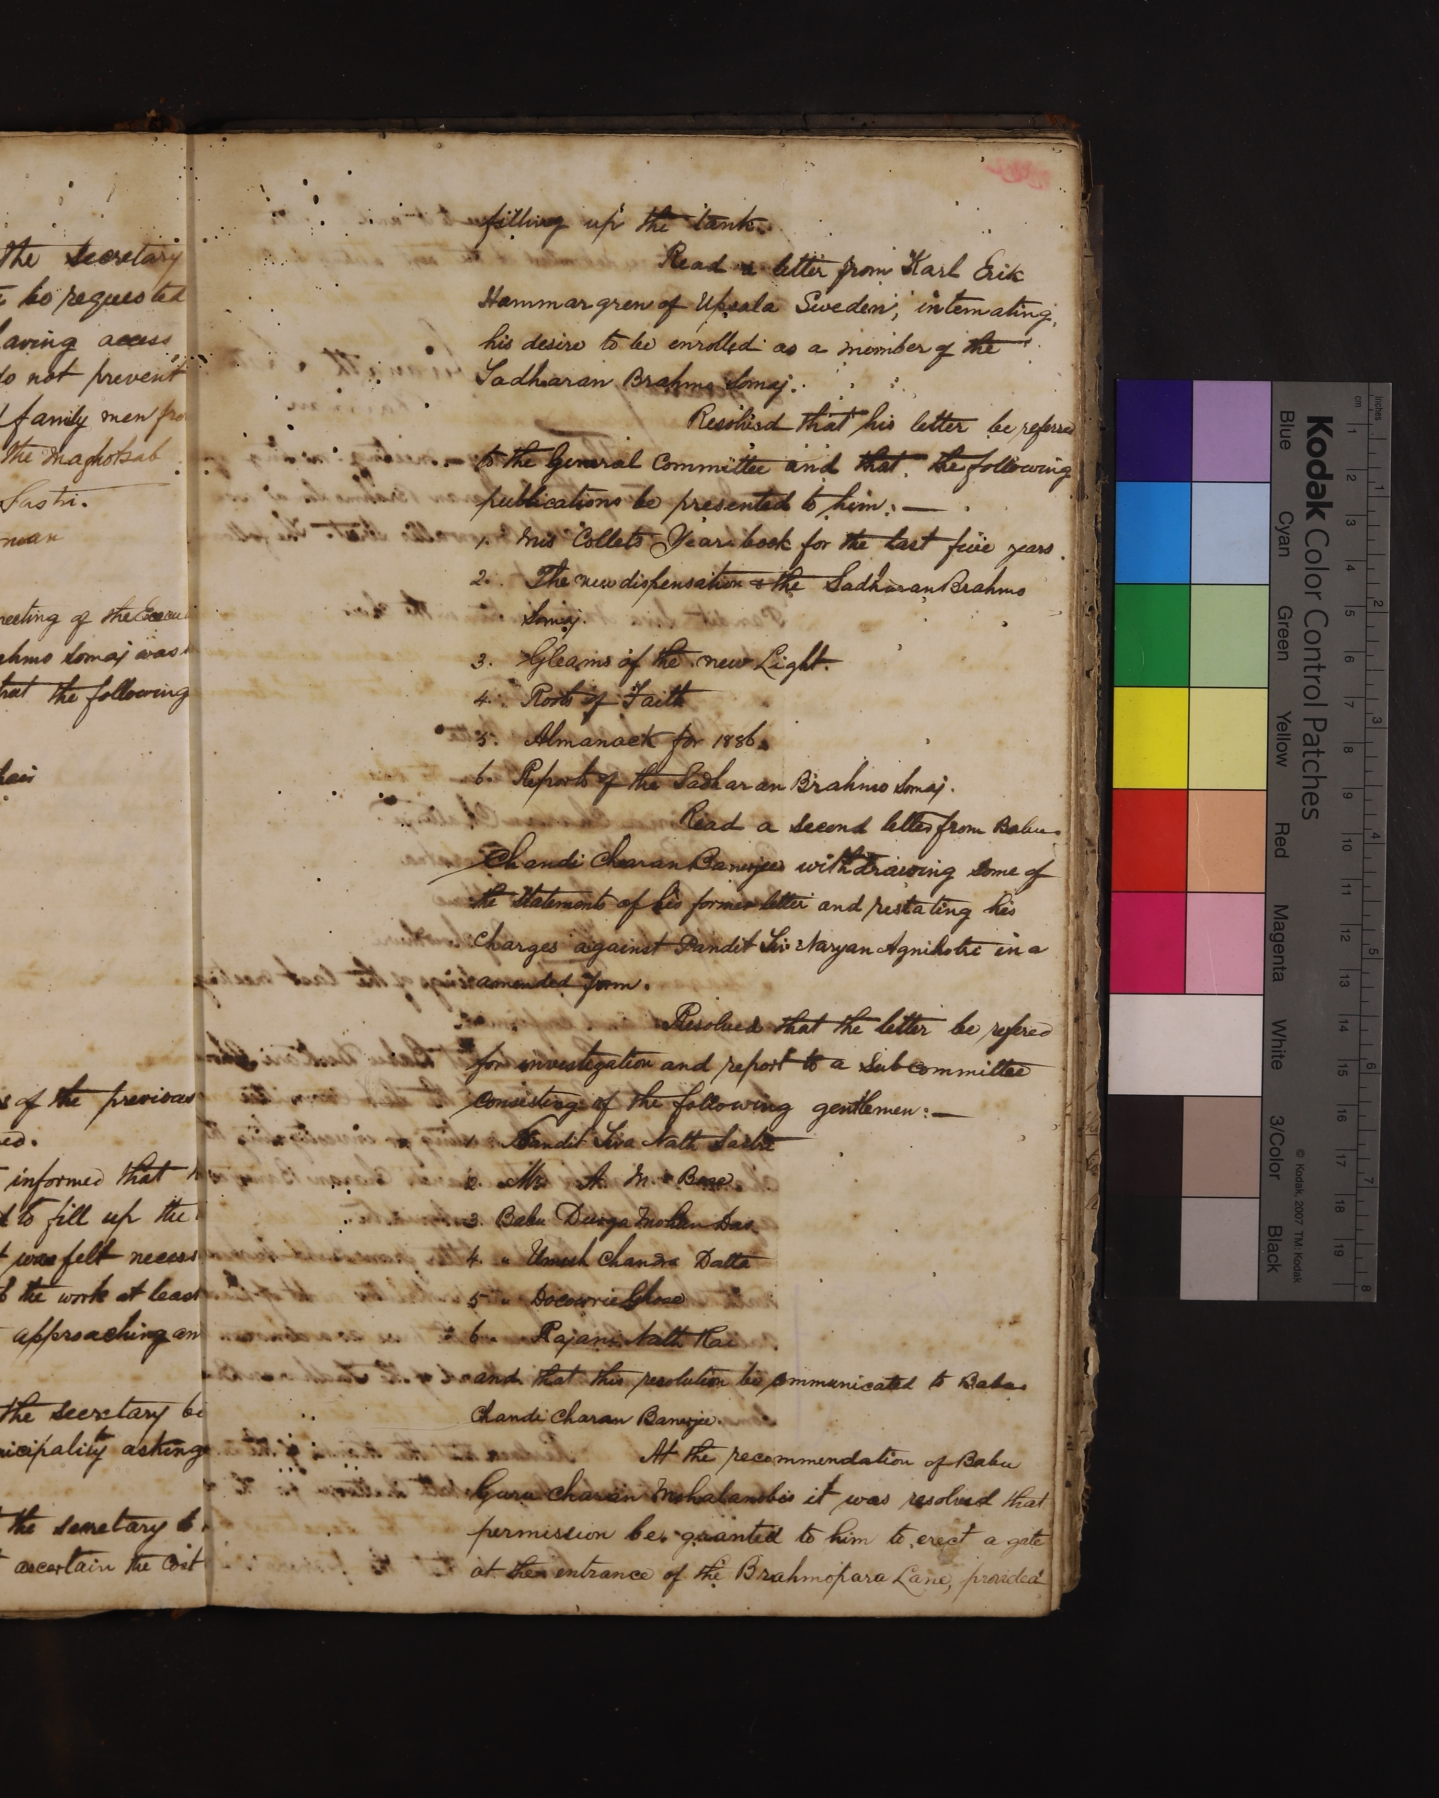 the Secretary
be requested
having access
do not prevent
family men
the Maghotsab
Sastri.
meeting of the
Brahmo Somaj was
that the following
of the previous
informed that
to fill up the
was felt
the work at least
approaching
the secretary be
asking
the secretary
ascertain the cost
filling up the tank.
Read a letter from Karl Erik
Hammargren of Upsala Sweden, intemating
his desire to be enrolled as a member of the
Sadharan Brahmo Somaj.
Resolved that his letter be referred
to the General Committee and that the following
publications be presented to him: —
1. Mis Collets Year book for the last five years.
2. The new dispensation & the Sadharan Brahmo
Somaj.
3. Gleams of the new Light.
4. Roots of Faith
5. Almanack for 1886.
6. Reports of the Sadharan Brahmo Somaj.
Read a second letter from Babu
Chandi Charan Banerjee withdrawing some of
the statements of his former letter and restating his
charges against Pandit Siv Naryan Agnihotri in a
amended form.
Resolved that the letter be refered
for investigation and report to a Subcommittee
consisting of the following gentlemen: —
1. Pandit Siva Nath Sastri
2. Mr. A. M. Bose
3. Babu Durga Mohan Das
4. " Umesh Chandra Datta
5 " Docowrie Ghose
6. Rajani Nath Rai
and that this resolution be communicated to Babu
Chandi Charan Banerjee.
At the recommendation of Babu
Guru Charan Mohalanobis it was resolved that
permission be granted to him to erect a gate
at the entrance of the Brahmopara Lane, provided
Kodak Color Control Patches
Blue Cyan Green Yellow Red Magenta White 3/Color Black
© Kodak, 2007 TM: Kodak
inches 1 2 3 4 5 6 7 8
cm 1 2 3 4 5 6 7 8 9 10 11 12 13 14 15 16 17 18 19